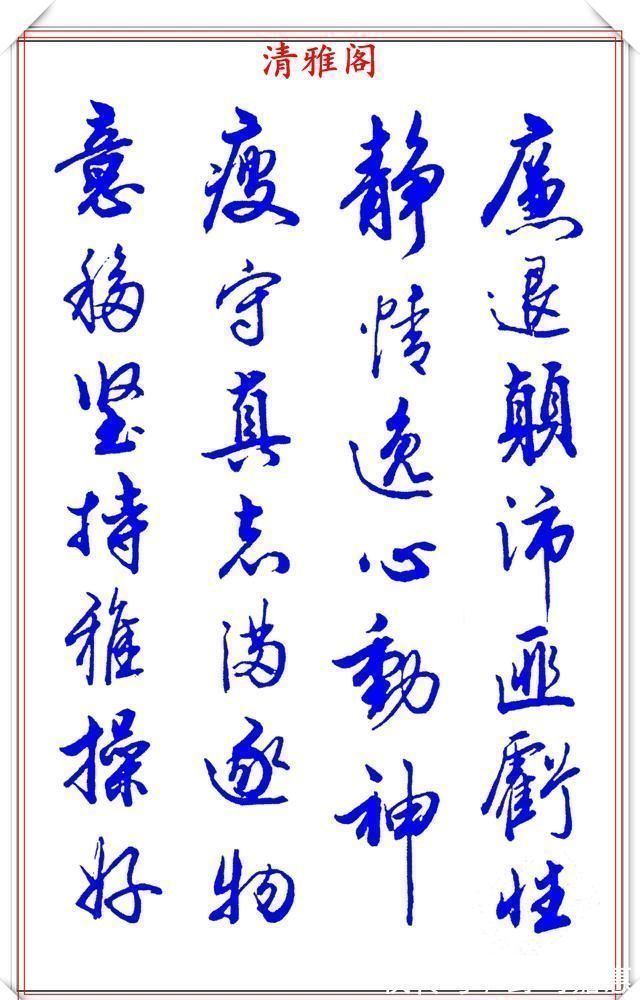 清雅阁
廉退顛沛匪虧性
静情逸心動神
瘦守真志满逐物
意移坚持雅操好